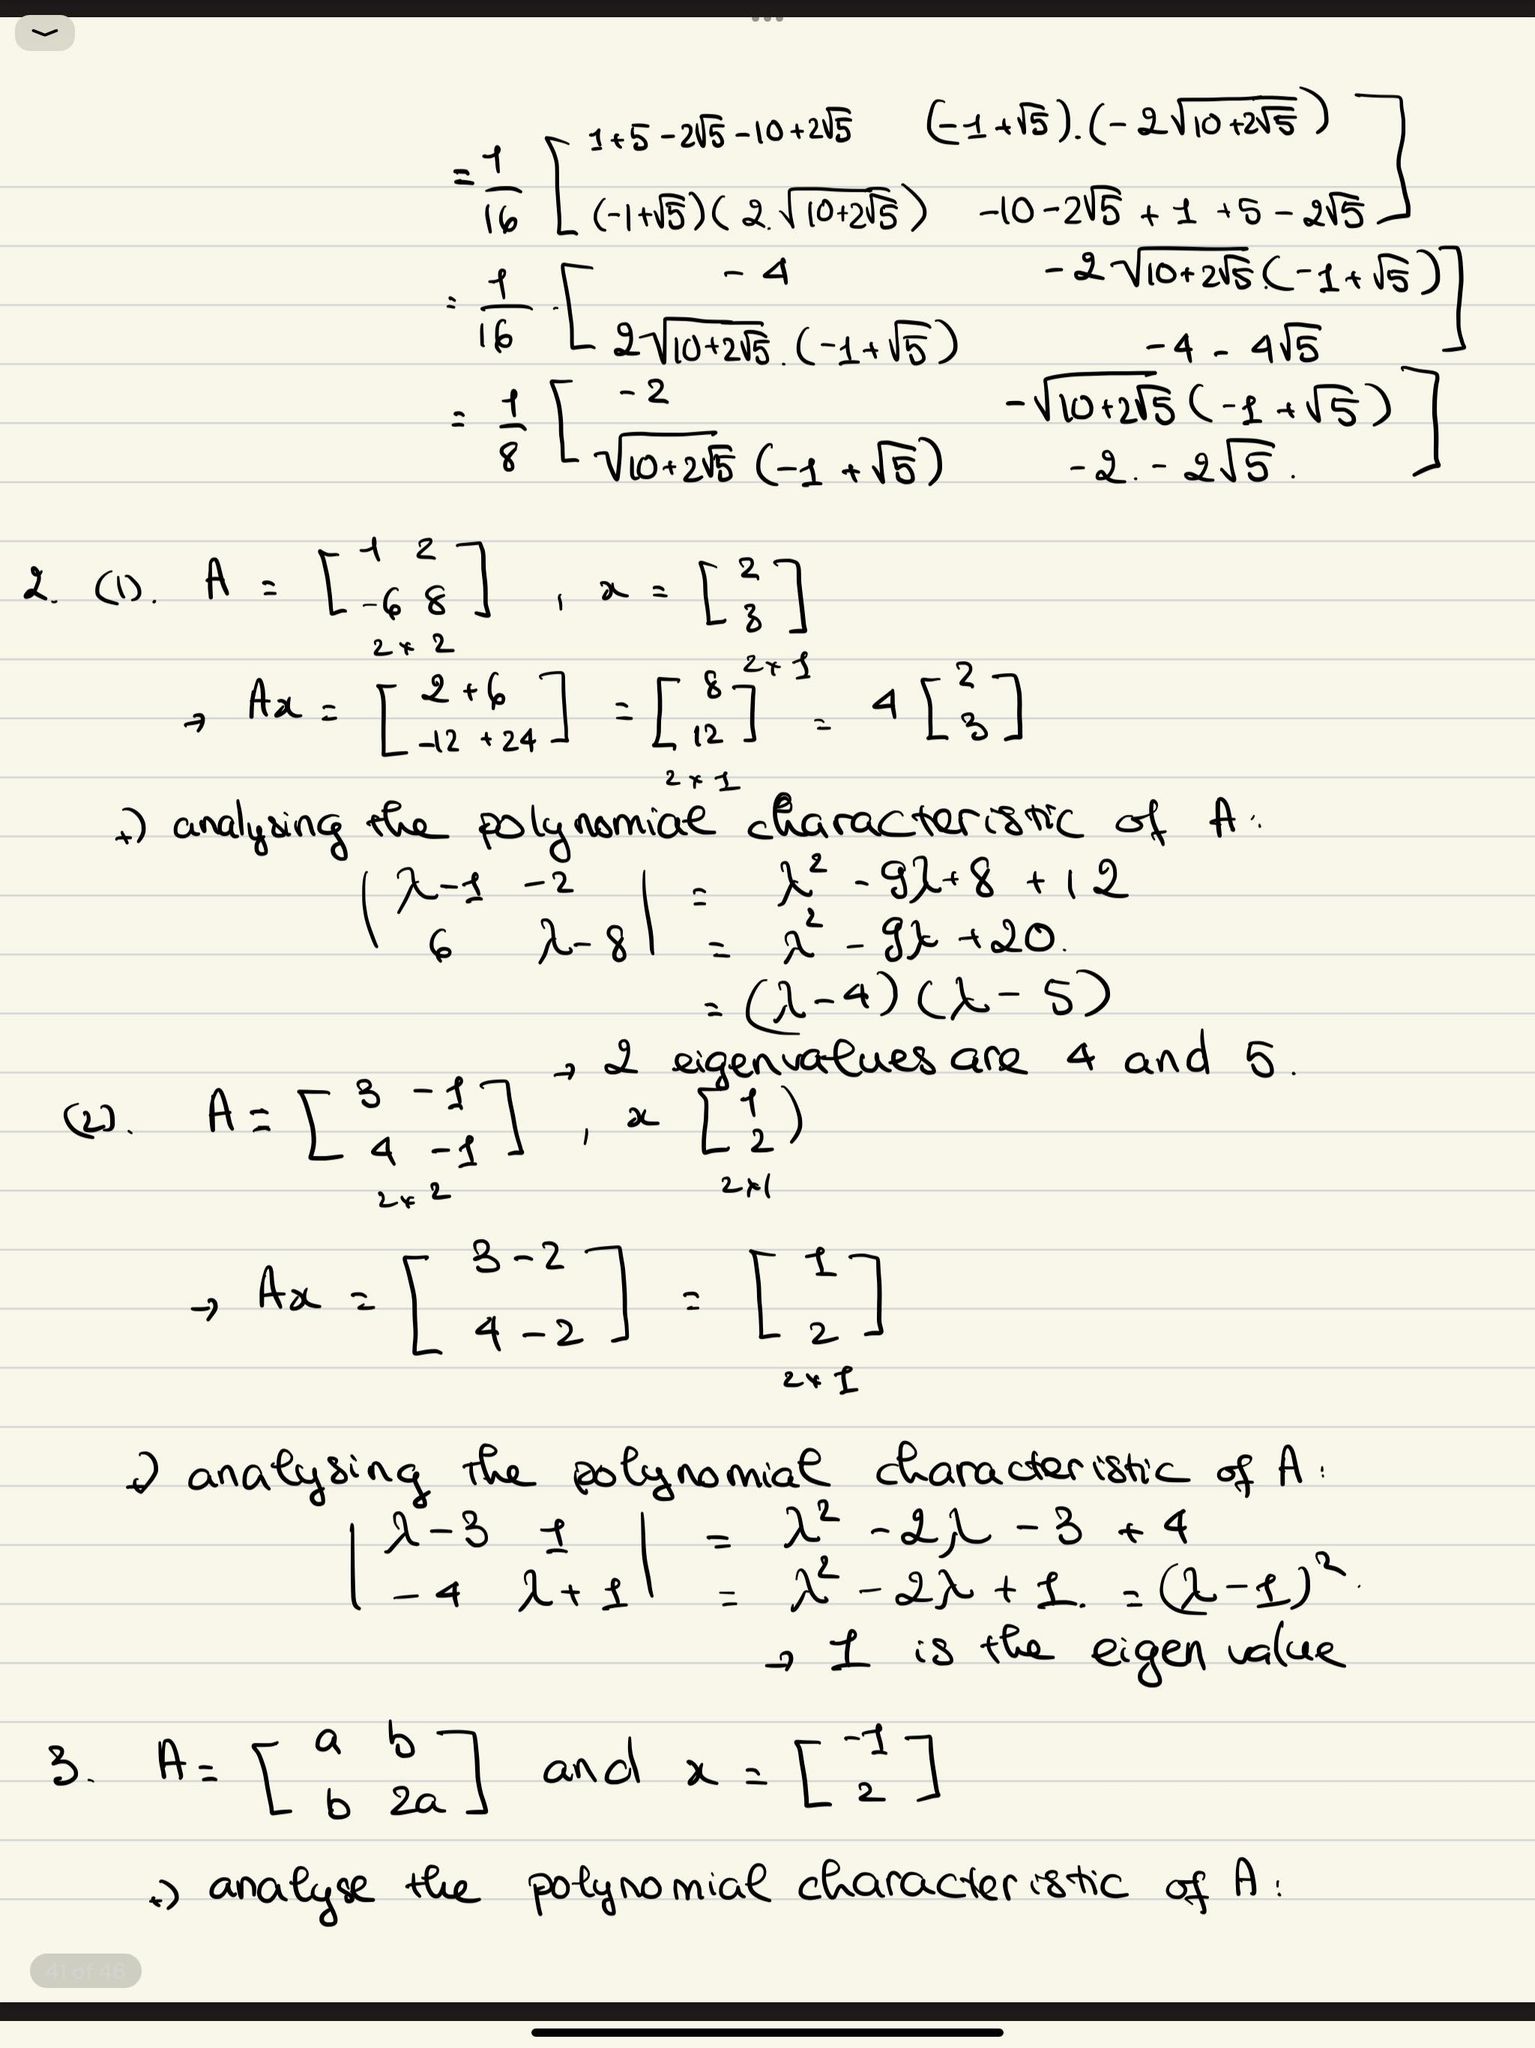 = 1/16 [ 1+5-2√5-10+2√5   (-1+√5).(-2√(10+2√5))
(-1+√5)(2.√(10+2√5))   -10-2√5+1+5-2√5 ]
= 1/16 . [ -4   -2√(10+2√5)(-1+√5)
2√(10+2√5).(-1+√5)   -4-4√5 ]
= 1/8 [ -2   -√(10+2√5)(-1+√5)
√(10+2√5)(-1+√5)   -2.-2√5. ]
2. (1). A = [ 1 2 ; -6 8 ] , x = [ 2 ; 3 ]
2×2   2×1
→ Ax = [ 2+6 ; -12+24 ] = [ 8 ; 12 ] = 4 [ 2 ; 3 ]
2×1
+) analysing the polynomial characteristic of A:
| λ-1 -2 | = λ² - 9λ+8 + 12
| 6 λ-8 | = λ² - 9λ + 20.
= (λ-4)(λ-5)
→ 2 eigenvalues are 4 and 5.
(2). A = [ 3 -1 ; 4 -1 ] , x [ 1 ; 2 )
2×2   2×1
→ Ax = [ 3-2 ; 4-2 ] = [ 1 ; 2 ]
2×1
+) analysing the polynomial characteristic of A:
| λ-3 1 | = λ² - 2λ - 3 + 4
| -4 λ+1 | = λ² - 2λ + 1. = (λ-1)².
→ 1 is the eigen value
3. A = [ a b ; b 2a ] and x = [ -1 ; 2 ]
+) analyse the polynomial characteristic of A:
41 of 46